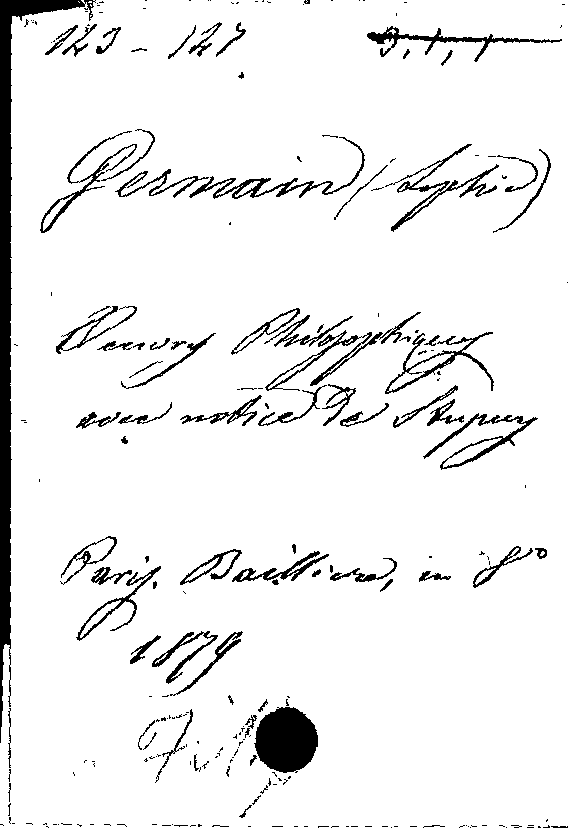 123 - 127 3, 1, 1
Germain (Sophie)
Oeuvres Philosophiques
avec notice de Stupuy
Paris. Baillière, in 8º
1879